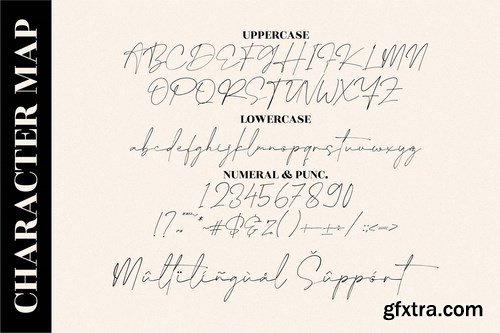 CHARACTER MAP
UPPERCASE
ABCDEFGHIJKLMN
OPQRSTUVWXYZ
LOWERCASE
abcdefghijklmnopqrstuvwxyz
NUMERAL & PUNC.
1234567890
Mûltïlìñgùál Šûppórt
gfxtra.com